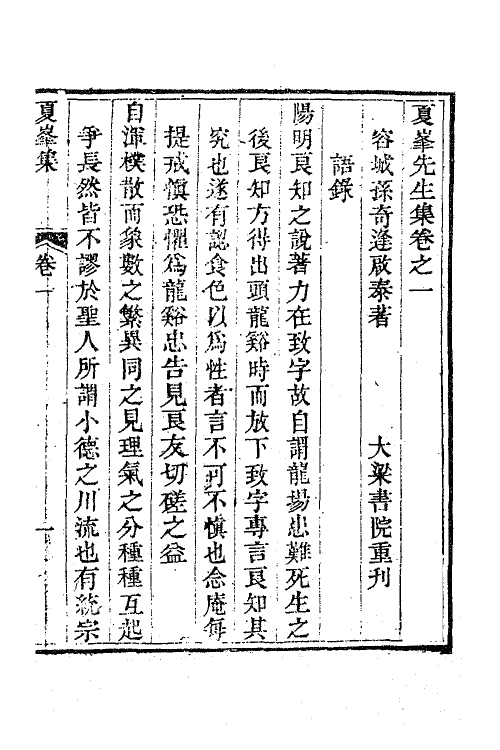 夏峯先生集卷之一
容城孫奇逢啟泰著　大梁書院重刊
語錄
陽明良知之說著力在致字故自謂龍場患難死生之
後良知方得出頭龍谿時而放下致字專言良知其
究也遂有認食色以爲性者言不可不慎也念庵每
提戒慎恐懼爲龍谿忠告見良友切磋之益
自渾樸散而象數之繁異同之見理氣之分種種互起
爭長然皆不謬於聖人所謂小德之川流也有統宗
夏峯集　卷一　一